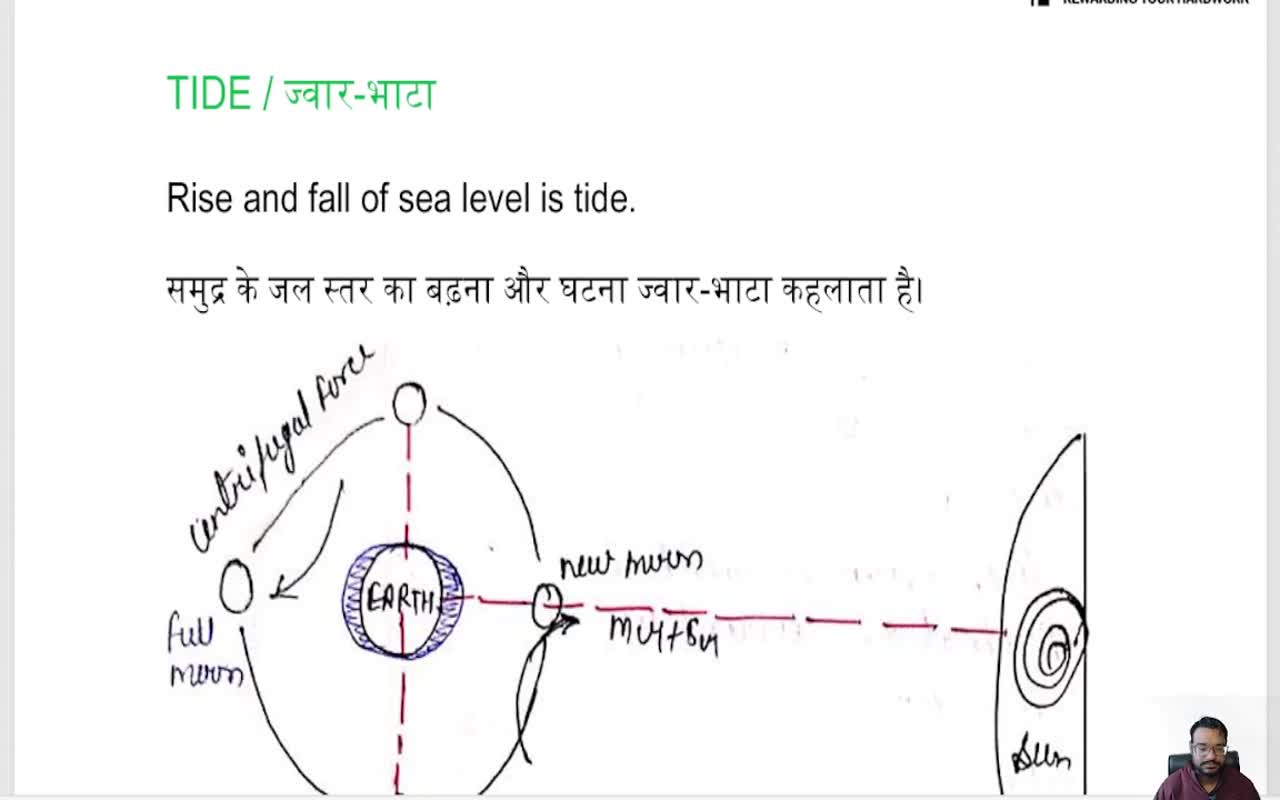 REWARDING YOUR HARDWORK
TIDE / ज्वार-भाटा
Rise and fall of sea level is tide.
समुद्र के जल स्तर का बढ़ना और घटना ज्वार-भाटा कहलाता है।
centrifugal force
EARTH
new moon
full
moon
Sun